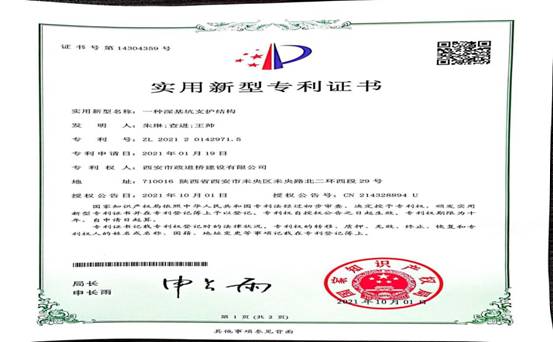 证书号第14304359号
实用新型专利证书
实用新型名称：一种深基坑支护结构
发明人：朱琳;查进;王帅
专利号：ZL 2021 2 0142971.5
专利申请日：2021年01月19日
专利权人：西安市政道桥建设有限公司
地址：710016 陕西省西安市未央区未央路北二环西段29号
授权公告日：2021年10月01日 授权公告号：CN 214328894 U
国家知识产权局依照中华人民共和国专利法经过初步审查，决定授予专利权，颁发实用
新型专利证书并在专利登记簿上予以登记。专利权自授权公告之日起生效。专利权期限为十
年，自申请日起算。
专利证书记载专利权登记时的法律状况。专利权的转移、质押、无效、终止、恢复和专
利权人的姓名或名称、国籍、地址变更等事项记载在专利登记簿上。
局长
申长雨
申长雨
国家知识产权局
2021年10月01日
第1页（共2页）
其他事项参见背面